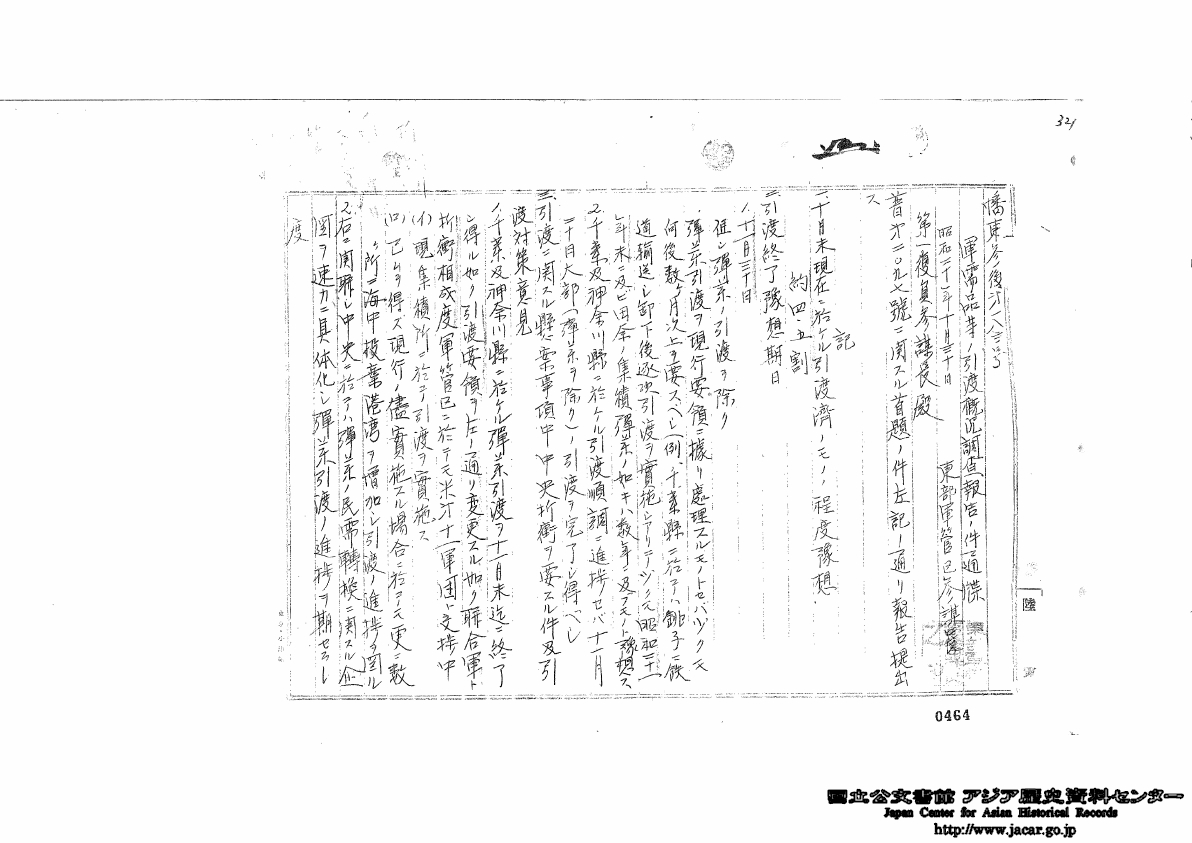 321
東参後第一八三号
軍需品等ノ引渡概況調査報告ノ件通牒
昭和二十年十月三十日 東部軍管区参謀長
第一復員参謀長殿
普次二〇九七號ニ関スル首題ノ件左記ノ通リ報告提出
ス
記
一、十月末現在ニ於ケル引渡済ノモノノ程度豫想
約四・五割
二、引渡終了豫想期日
1、十一月三十日
但シ彈薬ノ引渡ヲ除ク
彈薬引渡ヲ現行要領ニ據リ處理スルモノトセバ
何後数ヶ月以上ヲ要スベシ(例、千葉縣ニ於テハ銚子ニ鉄
道輸送シ卸下後逐次引渡ヲ實施シアリ 昭和二一
年末ニ及ビ ノ集積彈薬ノ如キハ数年ニ及ブモノト豫想ス
2、千葉及神奈川縣ニ於ケル引渡順調ニ進捗セバ十一月
三十日大部(彈薬ヲ除ク)ノ引渡ヲ完了シ得ベシ
三、引渡ニ関スル懸案事項中中央折衝ヲ要スル件及引
渡対策意見
1、千葉及神奈川縣ニ於ケル彈薬引渡ヲ十一月末迄ニ終了
シ得ル如ク引渡要領ヲ左ノ通リ変更スル如ク聯合軍ト
折衝相成度軍管区ニ於テモ米第十一軍団ト交捗中
(イ)現集積所ニ於テ引渡ヲ實施ス
(ロ)已ムヲ得ズ現行ノ儘實施スル場合ニ於テモ更ニ数
ヶ所ニ海中投棄港湾ヲ増加シ引渡ノ進捗ヲ圖ル
2、右ニ関聯シ中央ニ於テハ彈薬ノ民需轉換ニ関スル企
圖ヲ速カニ具体化シ彈薬引渡ノ進捗ヲ期セラレ
度
陸
0464
國立公文書館 アジア歴史資料センター
Japan Center for Asian Historical Records
http://www.jacar.go.jp